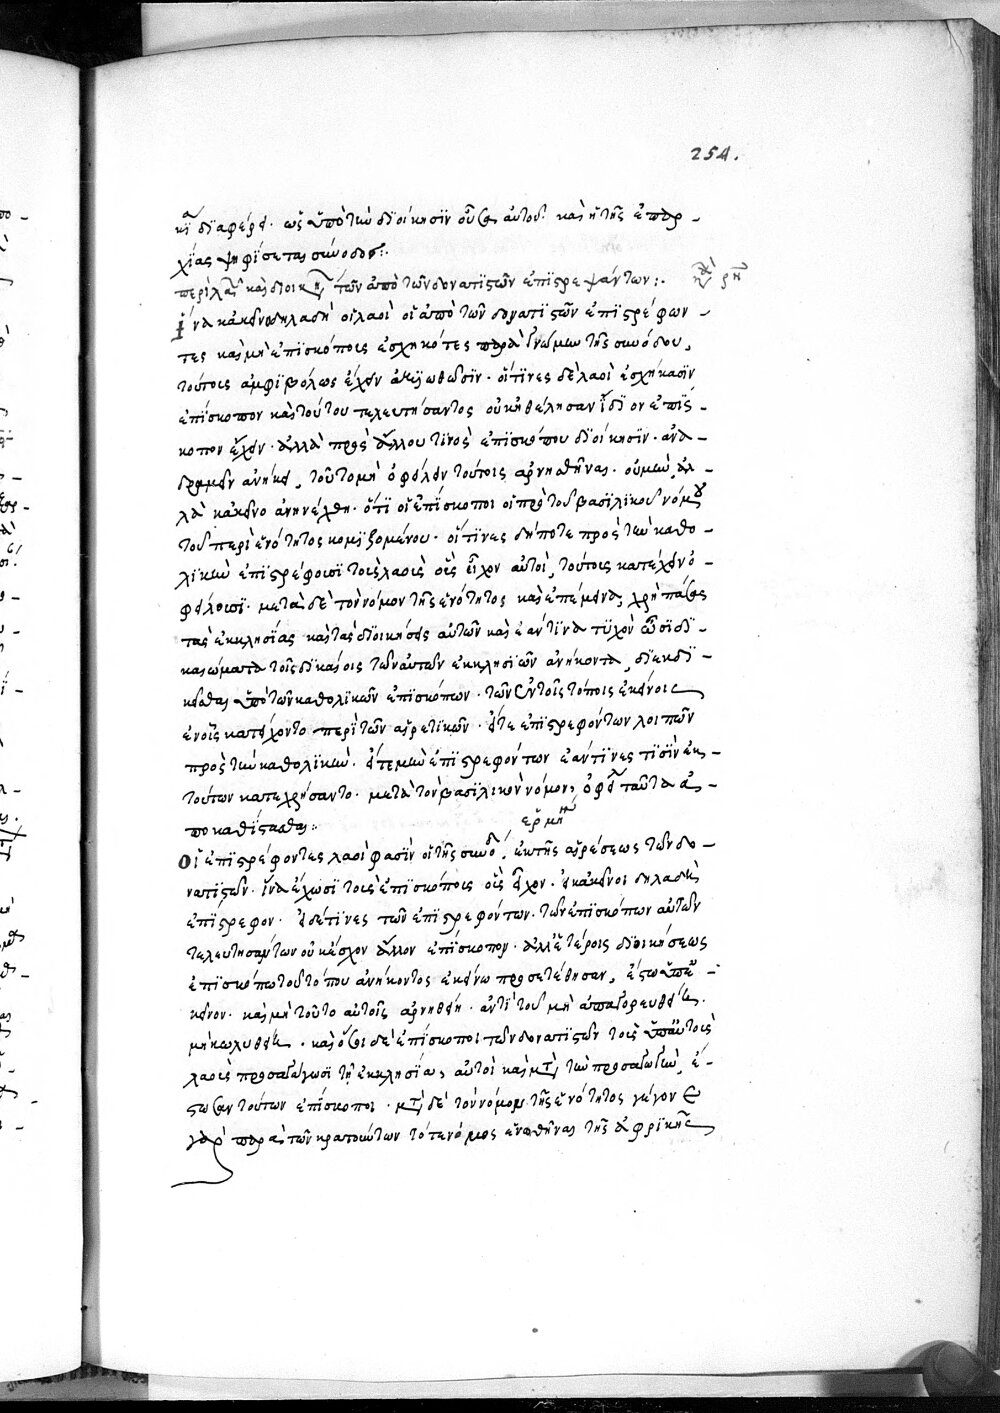 254.
κὴ διαφέρει. ὡς ὑπὸ τὴν διοίκησιν οὖσα αὐτοῦ. καὶ ἡ τῆς ἐπαρ-
χίας ψηφίσεται σύνοδος:
περὶ λαοῦ καὶ διοικήσεων τῶν ἀπὸ τῶν δονατιστῶν ἐπιστρεψάντων:. κεφάλαιον ρη
ἵνα κἀκεῖνο δηλαδὴ οἱ λαοὶ οἱ ἀπὸ τῶν δονατιστῶν ἐπιστρέφον-
τες καὶ μὴ ἐπισκόπους ἐσχηκότες παρὰ γνώμην τῆς συνόδου,
τούτους ἀμφιβόλως ἔχειν ἀξιωθῶσιν. οἵτινες δὲ λαοὶ ἐσχήκασιν
ἐπίσκοπον καὶ τούτου τελευτήσαντος οὐκ ἠθέλησαν ἴδιον ἐπίσ-
κοπον ἔχειν. ἀλλὰ πρὸς ἄλλου τινὸς ἐπισκόπου διοίκησιν. ἀνα-
δραμεῖν ἀνήκει, τοῦτο μὴ ὀφείλειν τούτοις ἀρνηθῆναι. οὐ μὴν ἀλ-
λὰ κἀκεῖνο ἀνηνέχθη. ὅτι οἱ ἐπίσκοποι οἱ πρὸ τοῦ βασιλικοῦ νόμου
τοῦ περὶ ἑνότητος κομιζομένου. οἵτινες δήποτε πρὸς τὴν καθο-
λικὴν ἐπιστρέφουσι τοὺς λαοὺς οὓς εἶχον αὐτοί, τούτους κατέχειν ὀ-
φείλουσι. μετὰ δὲ τὸν νόμον τῆς ἑνότητος καὶ ἐπέκεινα, χρὴ πάσας
τὰς ἐκκλησίας καὶ τὰς διοικήσεις αὐτῶν καὶ ἐάν τινα τυχὸν ὦσι δι-
καιώματα τοῖς δικαίοις τῶν αὐτῶν ἐκκλησιῶν ἀνήκοντα, διεκδι-
κεῖσθαι ὑπὸ τῶν καθολικῶν ἐπισκόπων. τῶν ἐν τοῖς τόποις ἐκείνοις
ἐν οἷς κατείχοντο περὶ τῶν αἱρετικῶν. εἴτε ἐπιστρεφόντων λοιπῶν
πρὸς τὴν καθολικὴν. εἴτε μὴ ἐπιστρεφόντων ἐάν τινες τισὶν ἐκ
τούτων κατεχρήσαντο. μετὰ τὸν βασιλικὸν νόμον, ὀφείλει ταῦτα ἀ-
ποκαθίστασθαι:
ἑρμηνεία
Οἱ ἐπιστρέφοντες λαοὶ φασὶν οἱ τῆς συνόδου, ἐκ τῆς αἱρέσεως τῶν δο-
νατιστῶν. ἵνα ἔχωσι τοὺς ἐπισκόπους οὓς εἶχον. εἰ κἀκεῖνοι δηλαδὴ
ἐπίστρεφον. εἰ δέ τινες τῶν ἐπιστρεφόντων. τῶν ἐπισκόπων αὐτῶν
τελευτησάντων οὐκ ἔσχον ἄλλον ἐπίσκοπον. ἀλλ' ἑτέροις διοικήσεως
ἐπισκόπῳ τοῦ τόπου ἀνήκοντος ἐκείνῳ προσετέθησαν, ἔστω ὑπ' ἐ-
κεῖνον. καὶ μὴ τοῦτο αὐτοῖς ἀρνηθείη. ἀντὶ τοῦ μὴ ἀπαγορευθείη.
μὴ κωλυθείη. καὶ ὅσοι δὲ ἐπίσκοποι τῶν δονατιστῶν τοὺς ὑπ' αὐτοὺς
λαοὺς προσαγάγωσι τῇ ἐκκλησίᾳ, αὐτοὶ καὶ μετὰ τὴν προσαγωγὴν, ἔ-
στωσαν τούτων ἐπίσκοποι. μετὰ δὲ τὸν νόμον τῆς ἑνότητος γέγονε
γὰρ παρὰ τῶν κρατούντων τότε νόμος ἑνωθῆναι τῆς ἀφρικῆς